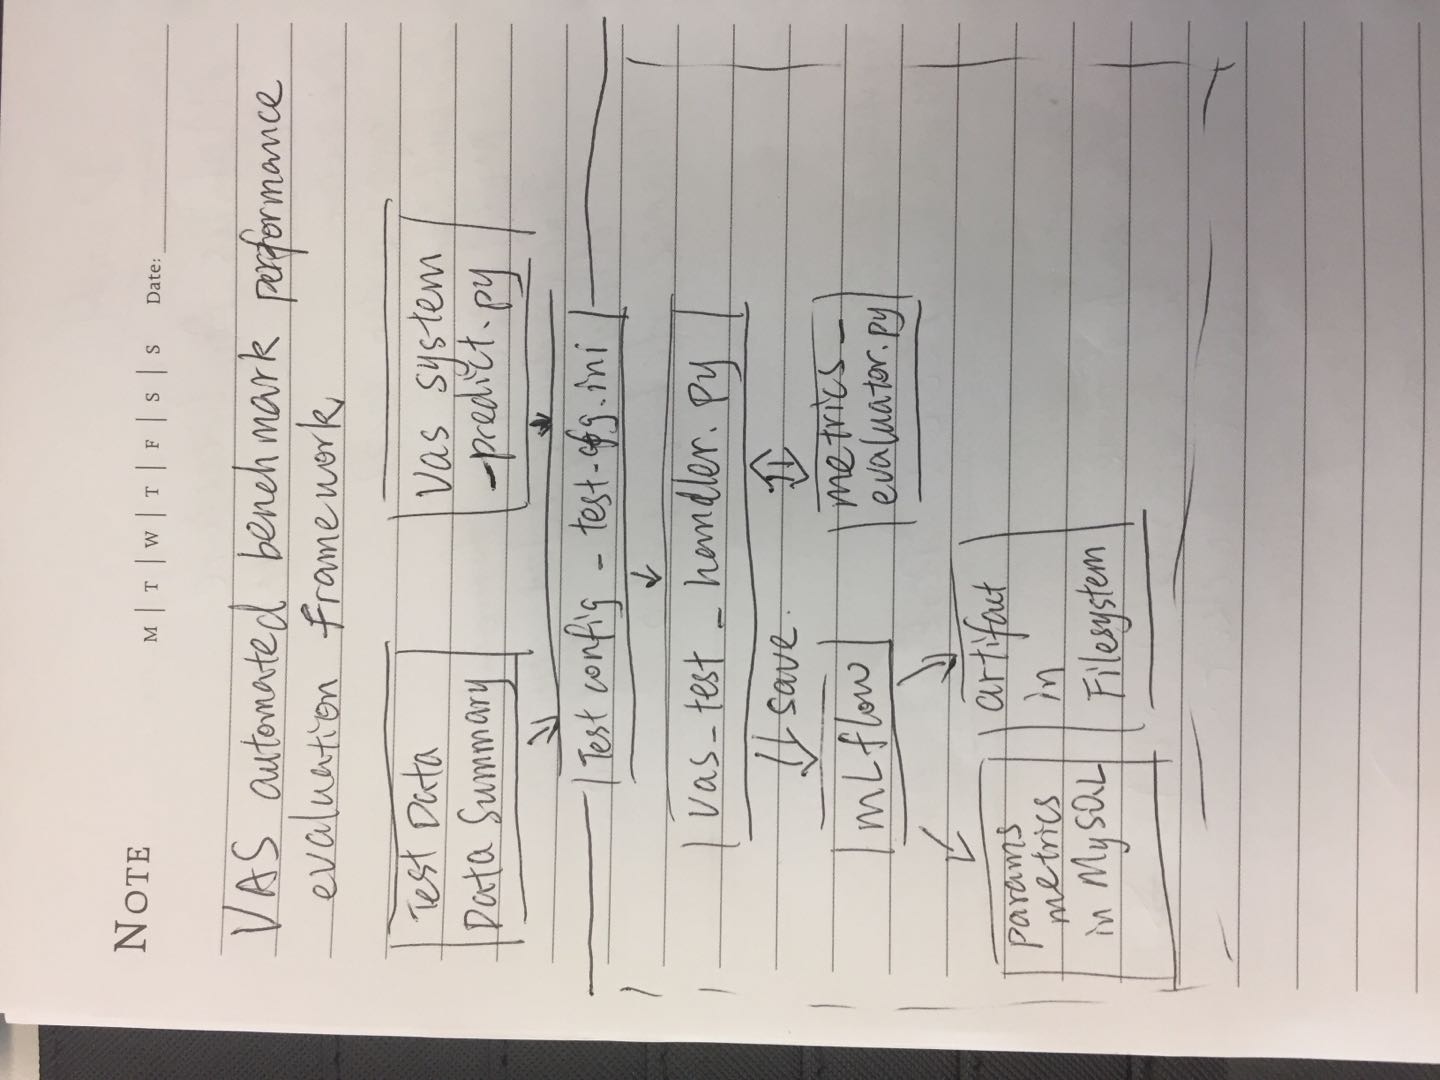 NOTE
M | T | W | T | F | S | S Date:
VAS automated benchmark performance
evaluation framework
Test Data
Data Summary
Vas system
-predict.py
Test config - test-cfg.ini
Vas_test_handler.py
save.
mLflow
metrics_
evaluator.py
params
metrics
in MySQL
artifact
in
Filesystem